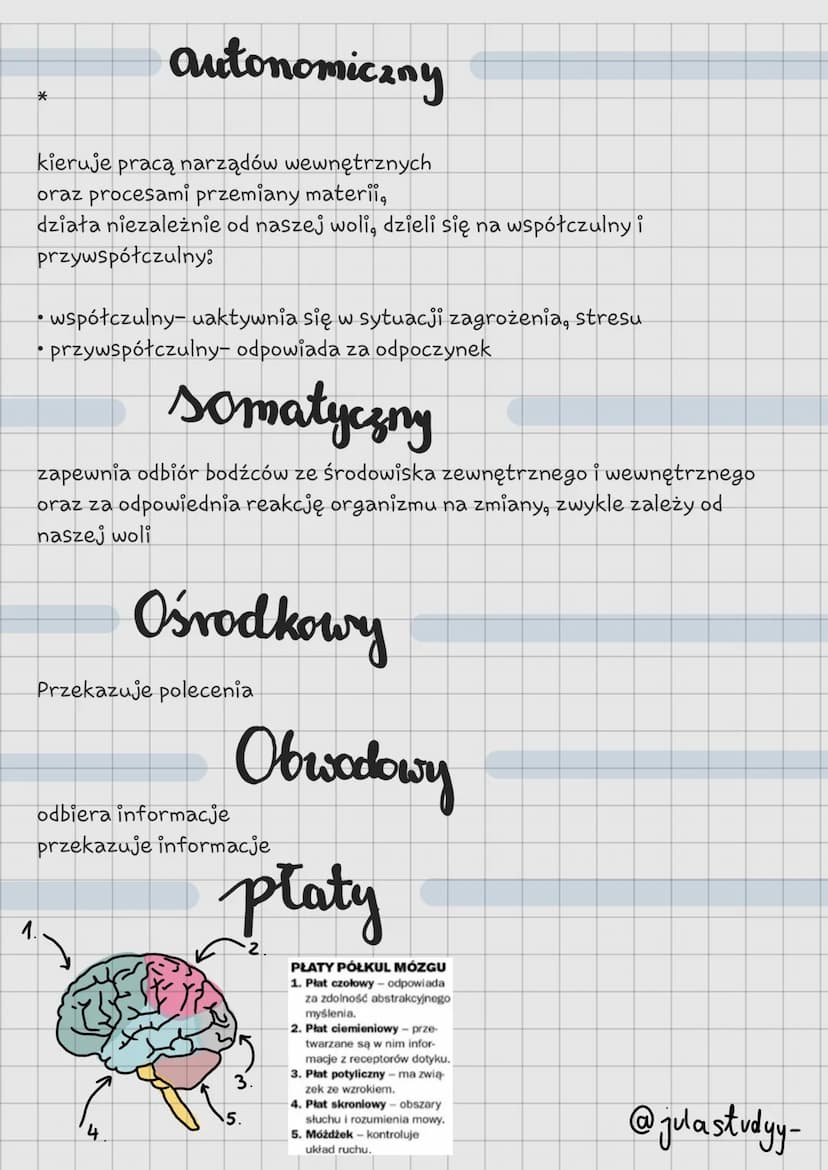 autonomiczny
*
kieruje pracą narządów wewnętrznych
oraz procesami przemiany materii,
działa niezależnie od naszej woli, dzieli się na współczulny i
przywspółczulny:
• współczulny- uaktywnia się w sytuacji zagrożenia, stresu
• przywspółczulny- odpowiada za odpoczynek
somatyczny
zapewnia odbiór bodźców ze środowiska zewnętrznego i wewnętrznego
oraz za odpowiednia reakcję organizmu na zmiany, zwykle zależy od
naszej woli
Ośrodkowy
Przekazuje polecenia
Obwodowy
odbiera informacje
przekazuje informacje
płaty
1.
2.
3.
4.
5.
PŁATY PÓŁKUL MÓZGU
1. Płat czołowy – odpowiada
za zdolność abstrakcyjnego
myślenia.
2. Płat ciemieniowy – prze-
twarzane są w nim infor-
macje z receptorów dotyku.
3. Płat potyliczny – ma zwią-
zek ze wzrokiem.
4. Płat skroniowy – obszary
słuchu i rozumienia mowy.
5. Móżdżek – kontroluje
układ ruchu.
@julastudyy-